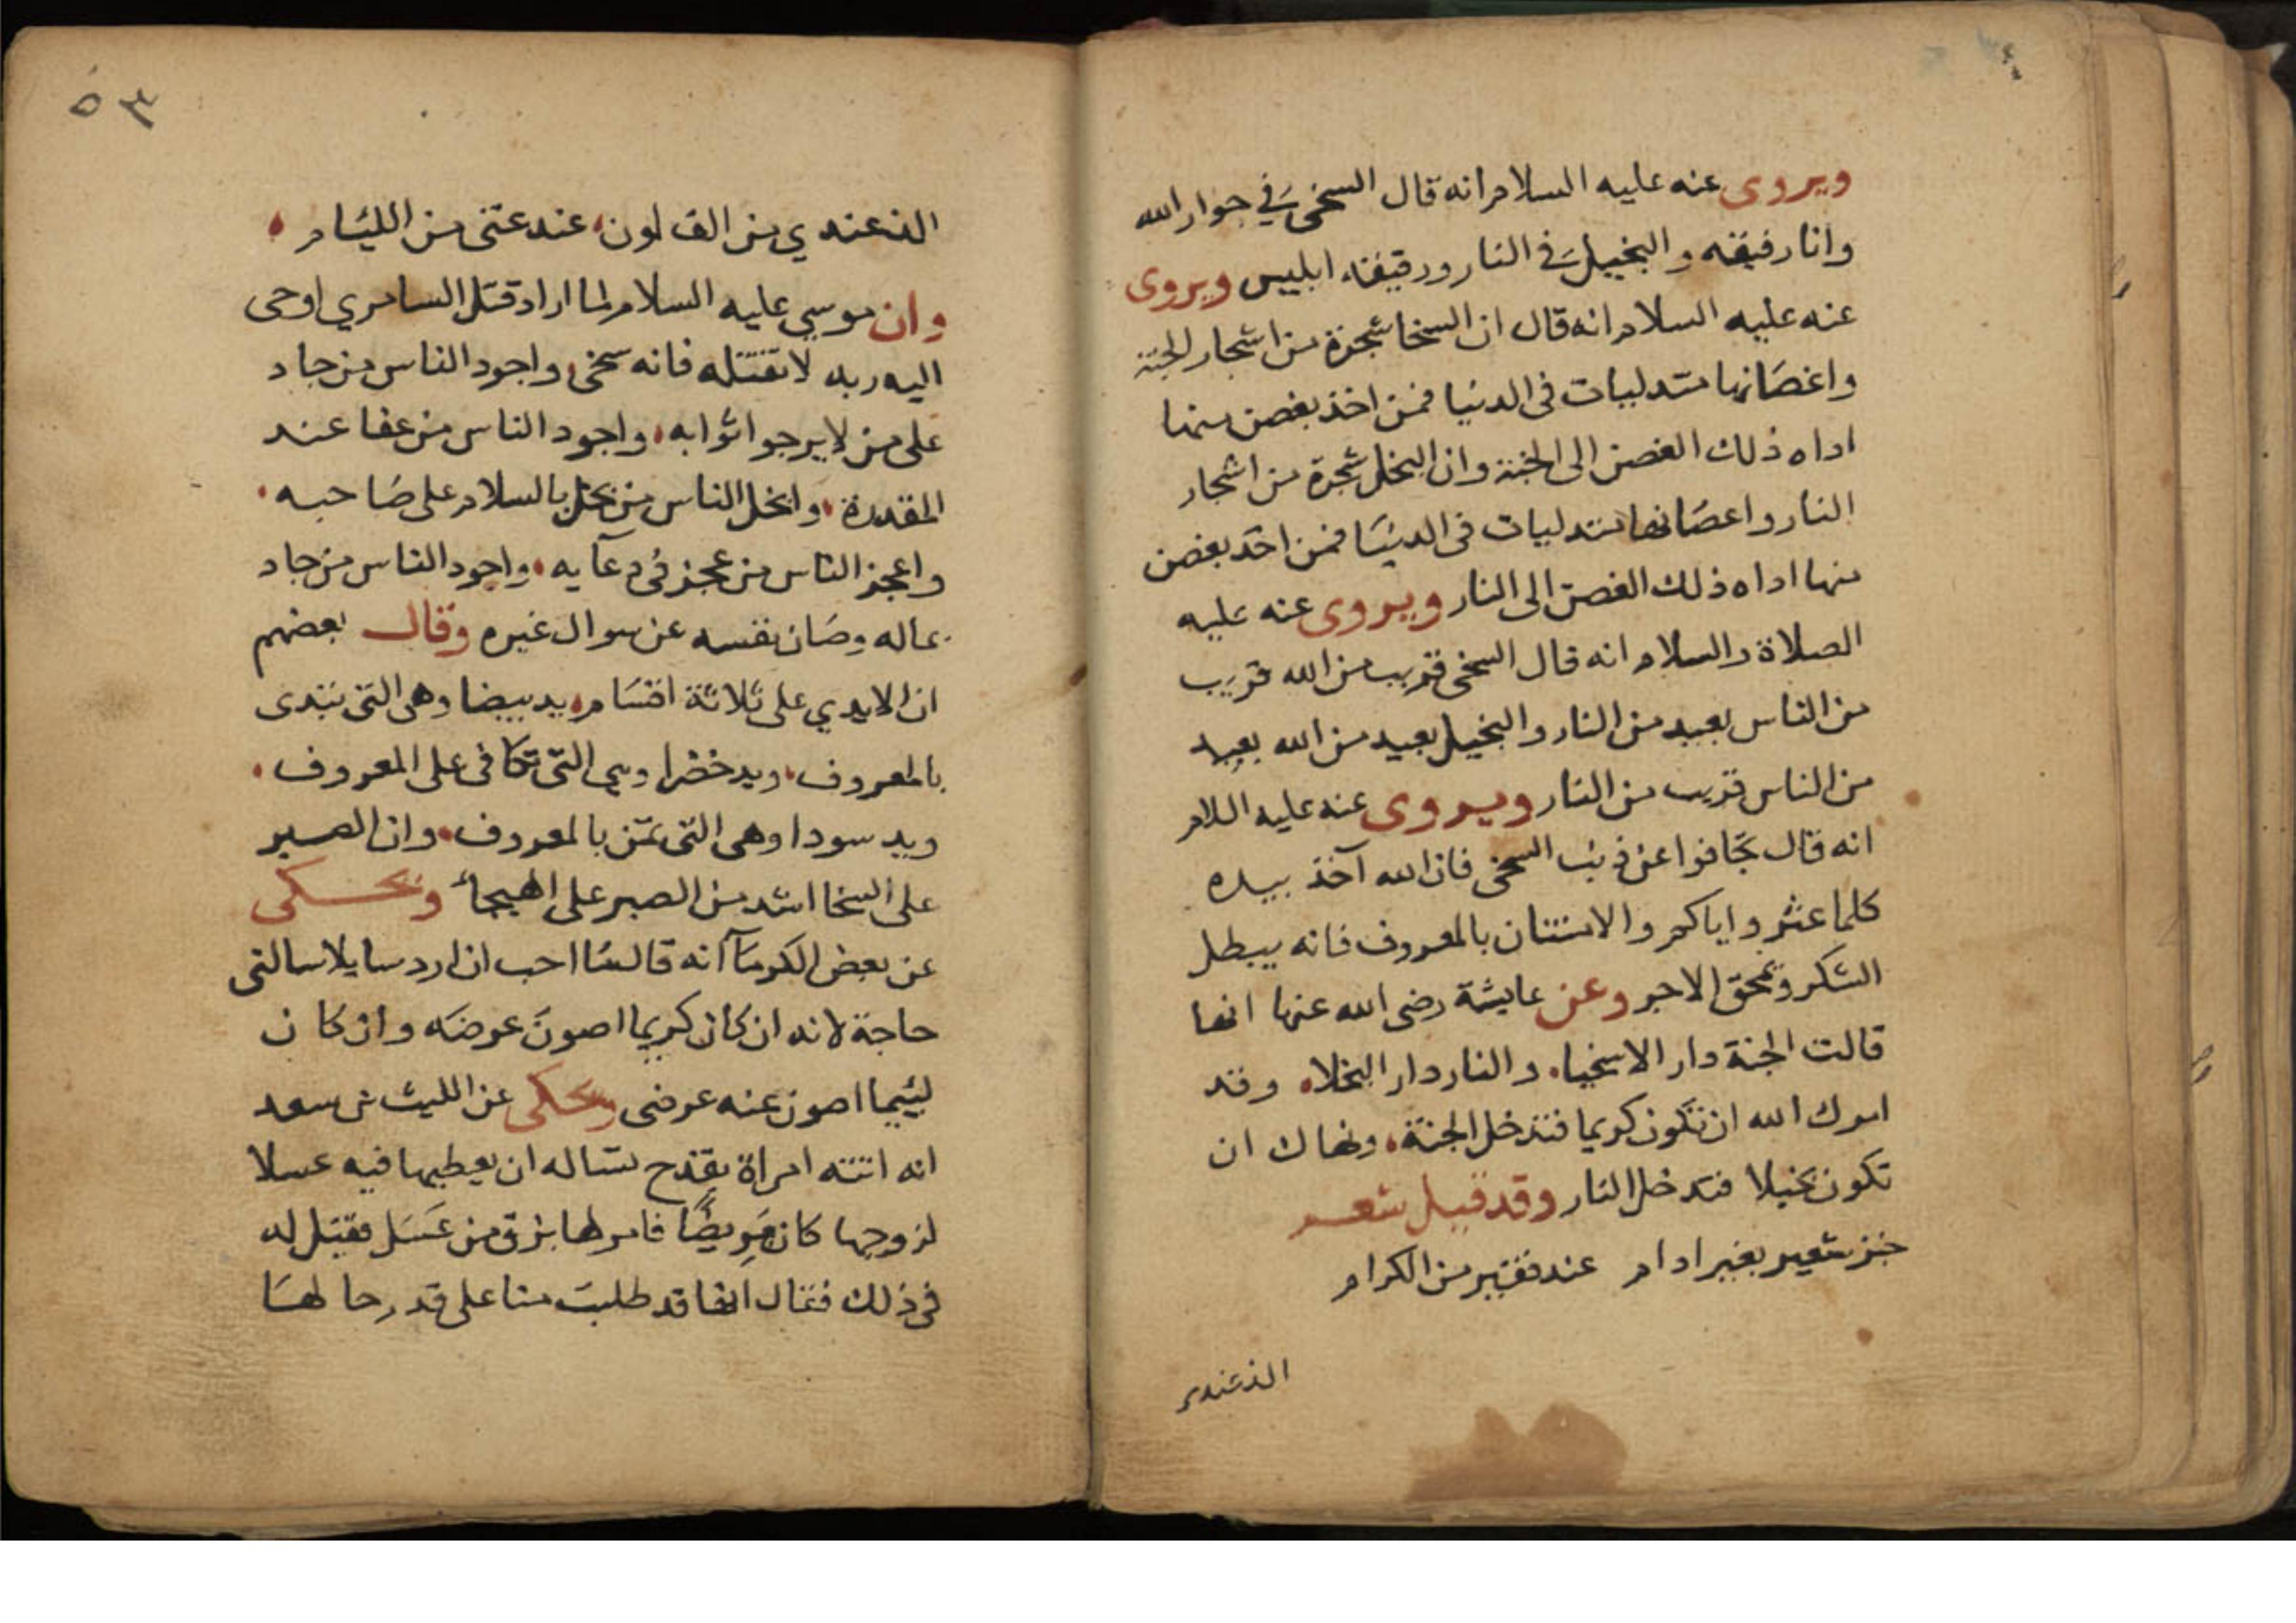 ويروى عنه عليه السلام انه قال السخى في جوار الله
وانا رفيقه والبخيل في النار ورقيقه ابليس ويروى
عنه عليه السلام انه قال ان السخا شجرة من اشجار الجنة
واغصانها متدليات فى الدنيا فمن اخذ بغصن منها
اداه ذلك الغصن الى الجنة وان البخل شجرة من اشجار
النار واعصانها متدليات فى الدنيا فمن اخذ بغصن
منها اداه ذلك الغصن الى النار ويروى عنه عليه
الصلاة والسلام انه قال السخى قريب من الله قريب
من الناس بعيد من النار والبخيل بعيد من الله بعيد
من الناس قريب من النار ويروى عنه عليه اللام
انه قال تجافوا عن ذنب السخى فان الله آخذ بيده
كلما عثر واياكم والامتنان بالمعروف فانه يبطل
الشكر ويمحق الاجر وعن عايشة رضى الله عنها انها
قالت الجنة دار الاسخيا، والنار دار البخلاء وقد
امرك الله ان تكون كريما فتدخل الجنة، ونهاك ان
تكون بخيلا فتدخل النار وقد قيل شعر
خبز شعير بغير ادام عند فقير من الكرام
الذ عندي
٥٣
الذ عندي من الف لون، عند عتنى من الليئام،
وان موسي عليه السلام لما اراد قتل السامري اوحى
اليه ربه لا تقتله فانه سخى، واجود الناس من جاد
على من لا يرجوا ثوابه، واجود الناس من عفا عند
المقدرة، وابخل الناس من بخل بالسلام على صاحبه،
واعجز الناس من عجز فى دعآيه، واجود الناس من جاد
بماله وصان نفسه عن سوال غيره وقال بعضهم
ان الايدي على ثلاثة اقسام، يد بيضا وهى التى تبتدى
بالمعروف، ويد خضرا وهي التى تكافى على المعروف،
ويد سودا وهى التى تمتن بالمعروف، وان الصبر
على السخا اشد من الصبر على الهيجاء ويحكى
عن بعض الكرمآ انه قال ما احب ان ارد سايلا سالنى
حاجة لانه ان كان كريما اصون عرضه وان كان
ليئيما اصون عنه عرضى ويحكى عن الليث بن سعد
انه اتته امراة بقدح تساله ان يعطيها فيه عسلا
لزوجها كان مريضًا فامر لها بزق من عسل فقيل له
فى ذلك فقال انها قد طلبت منا على قدر حالها